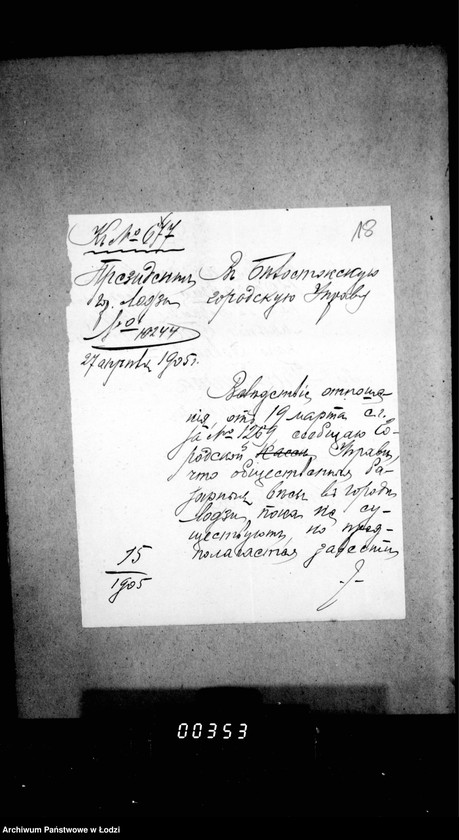 Къ № 677
18
Президентъ
гор. Лодзи
№ 10244
27 апрѣля 1905 г.
Въ Бѣлостокскую
городскую Управу
Вслѣдствіе отноше-
нія отъ 19 марта с. г.
за № 1269, сообщаю Го-
родской Управѣ,
что общественныя ба-
зарныя вѣсы въ городѣ
Лодзи пока не су-
ществуютъ, но пред-
полагается завести
15
1905
00353
Archiwum Państwowe w Łodzi